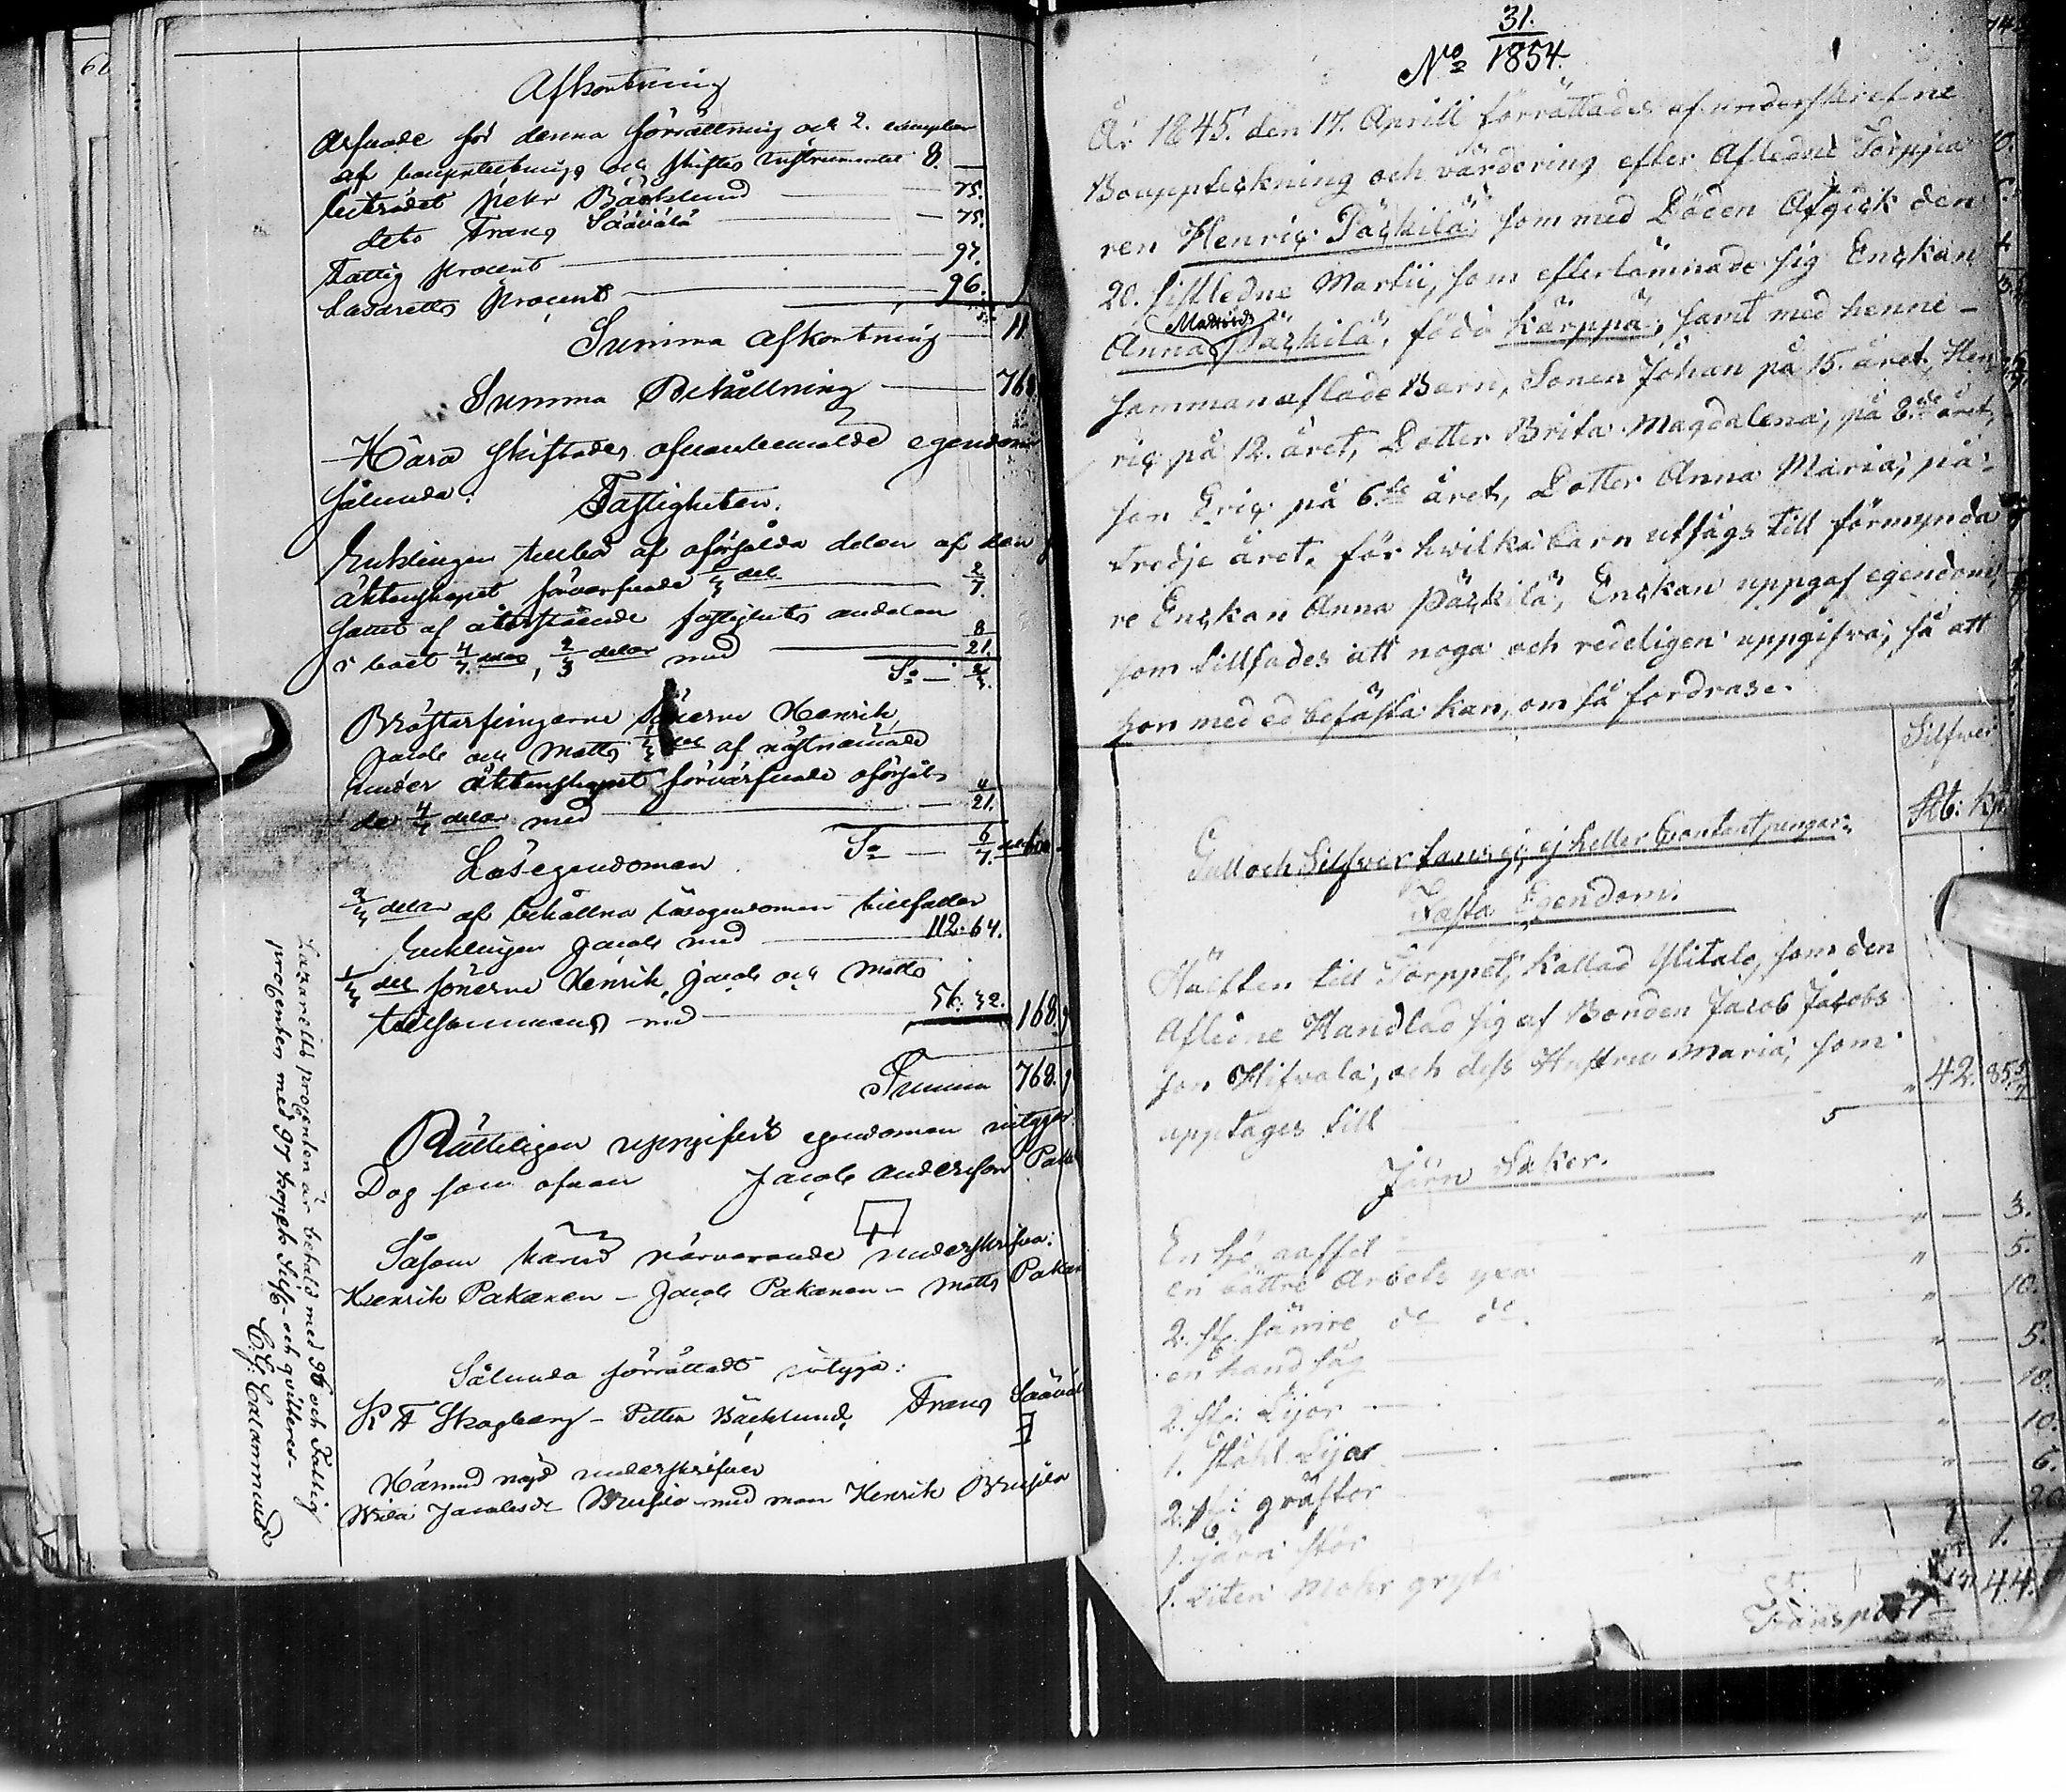 Afkortning
Arfvode för denna förrättning och 2. exemplar
af bouppteckнings och skiftes instrumentet 8. —
biträdet Petter Bäcklund — 75.
dito Frans Säävälä — 75.
Fattig procent — 97.
Lasaretts procent — 96.
Summa Afkortning — 11.
Summa Behållning — 768
Härå skiftades ofvanbemälde egendom
sålunda:
Fastigheten.
Enklingen tillkom af oförsålda delen af den
äktenskapet förvärfvade 2/3 del — 2/7.
samt af återstående fastighets andelen
i boet 4/7 delar, 2/3 delar med — 8/21.
Sa — 2/3.
Bröstarfvingarne Sönerne Henrik,
Jacob och Matts 1/3 del af nästnämnde
under äktenskapet förvärfvade oförsål-
da 4/7 delar med — 4/21.
Sa — 6/7 delar
Lösegendomen
2/3 delar af behållna lösegendomen tillfaller
Enklingen Jacob med — 112. 64.
1/3 del sönerne Henrik, Jacob och Matts
tillsammans med — 56. 32. 168.
Summa 768.
Rätteligen uppgifvit egendomen intygar
Dag som ofvan Jacob Andersson
Såsom härvid närvarande underskrifva:
Henrik Pakanen – Jacob Pakanen – Matts Pakanen
Sålunda förrättadt intyga:
K F Skogberg – Petter Bäcklund, Frans Säävälä
Härmed nöjd underskrifver
Jacobsdr Brusila med man Henrik Brusila
Lazaretts procenten är betald med 96 och Fattig
procenten med 97 kopek Silf. och qvitteras.
C. G. Calamnius
No 31./1854.
År 1845. den 17. Aprill förrättades af underskrefne
Bouppteckning och värdering efter Aflednе Torppa-
ren Henriç Päçkilä; som med Döden Afgick den
20. sistledne Martii, som efterlämnade sig Ençkan
Mattsdr
Anna Päçkilä, född Kärppä; samt med henne-
sammanaflade Barn, Sonen Johan på 15. året, Hen
riç på 12. året, Dotter Brita Magdalena; på 8.de året,
son Eriç på 6.te året, Dotter Anna Maria; på-
tredje året. för hwilka barn utsågs till förmynda
re Ençkan Anna Päçkilä; Ençkan uppgaf egendom,
som tillsades att noga och redeligen uppgifva; så att
hon med ed befästa kan, om så fordrase.
Silfwer
Rb: Kp:
Gull och Silfver fanns ej; ej heller Contant pengar.
Fasta Egendom.
Hälften till Torppet, Kallad Ylitalo, som den
Aflidne Handlad sig af Bonden Jacob Jacobs
son Hifvala; och dess Hustru Maria; som
upptages till — " 42. 85 5/7
Järn Saker.
En — " — 3.
en bättre Arbets yxa — " — 5.
2. st. sämre do do. — " — 10.
en hand såg — " — 5.
2. st: Lijor — " — 10.
1. Stähl Lijar — " — 10.
2. st: gräftor — " — 6.
1. järn stör — 20
1. Liten Mohr gryta — 1.
Transport 44.